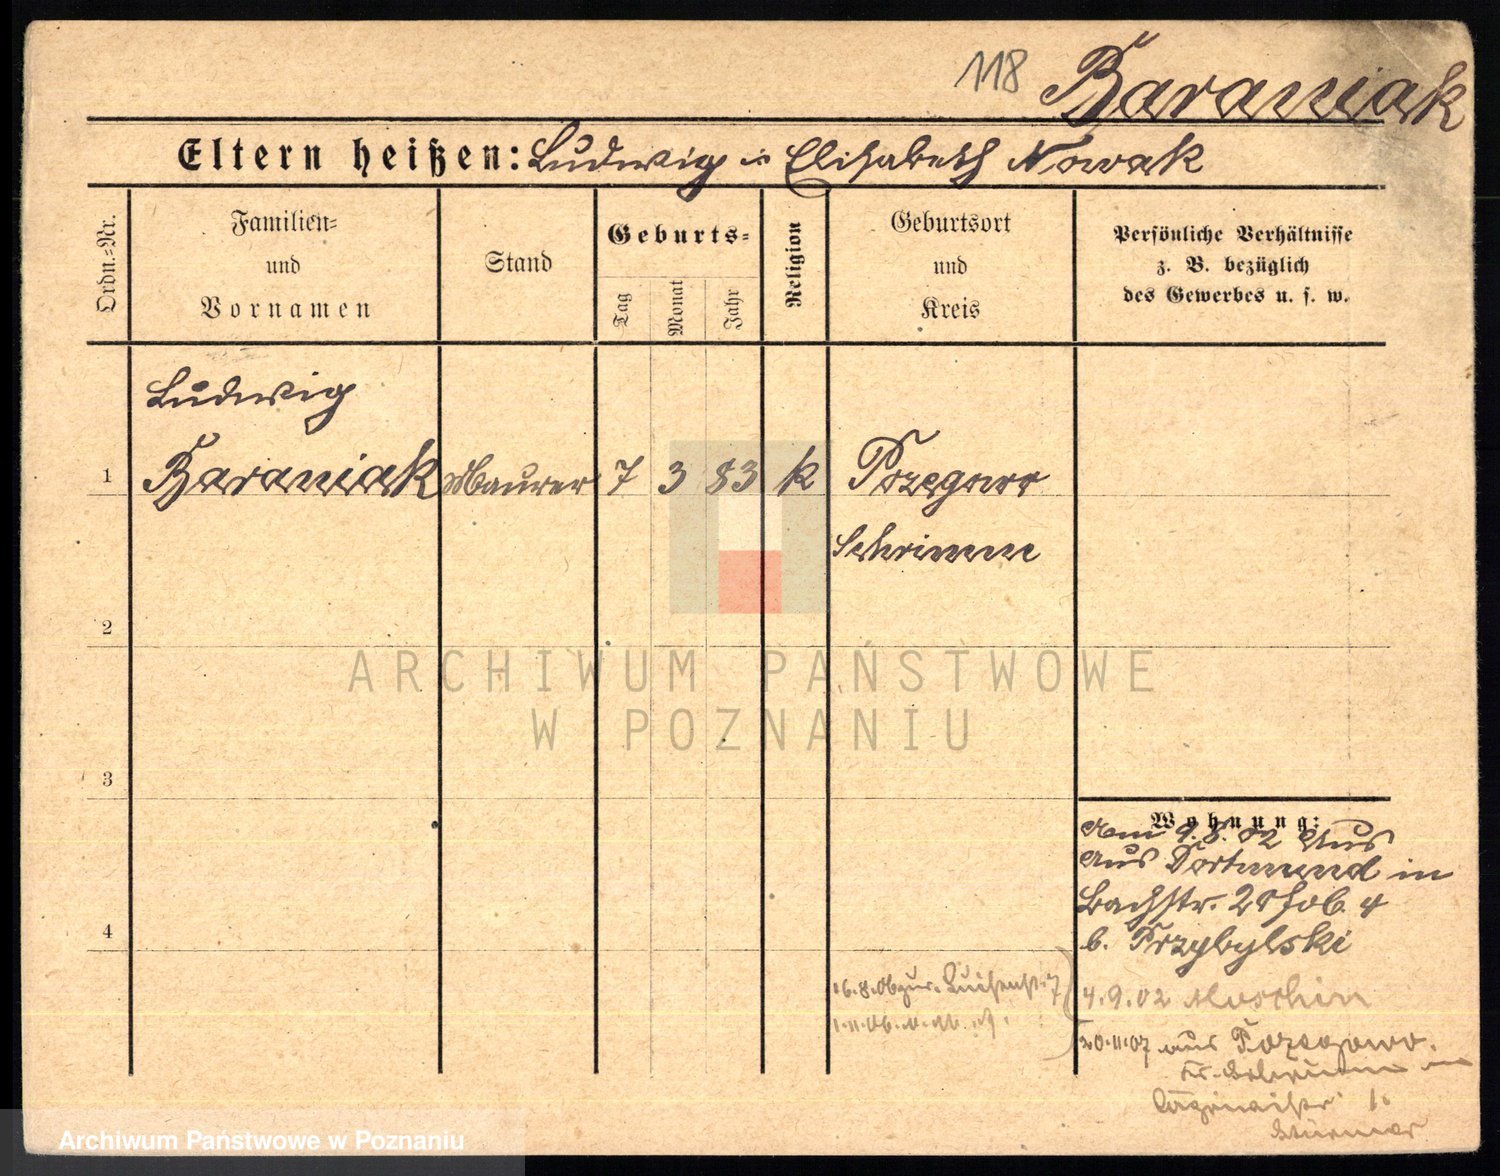 118 Baraniak
Eltern heißen: Ludwig u Elisabeth Nowak
Ordn.-Nr.
Familien-
und
Vornamen
Stand
Geburts-
Tag
Monat
Jahr
Religion
Geburtsort
und
Kreis
Persönliche Verhältnisse
z. B. bezüglich
des Gewerbes u. s. w.
Ludwig
1 Baraniak Maurer 7 3 83 k Przegowo
Schrimm
2
3
4
Wohnung:
Am 9.8.02 Aus
Aus Dortmund in
Bachstr. 2
b. Przybylski
4.9.02 Moschin
20.11.07 aus
Kr. Schrimm in
16.8.06 zur. Luisenstr. 7
1.11.06
ARCHIWUM PAŃSTWOWE
W POZNANIU
Archiwum Państwowe w Poznaniu